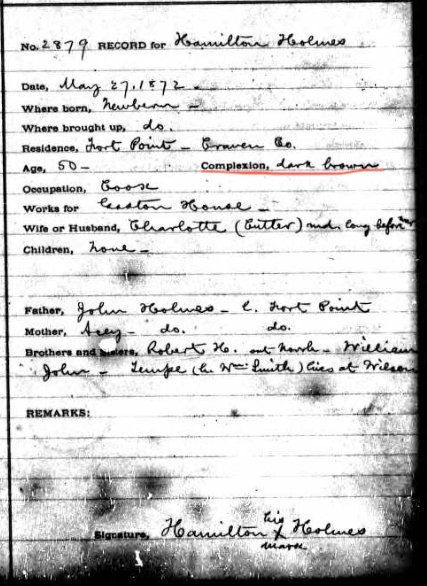 No. 2879 RECORD for Hamilton Holmes
Date, May 27, 1872 -
Where born, Newbern -
Where brought up, do.
Residence, Fort Point - Craven Co.
Age, 50 - Complexion, dark brown
Occupation, Cook
Works for Gaston House -
Wife or Husband, Charlotte (Cutter) md. long before
Children, none -
Father, John Holmes - l. Fort Point
Mother, do. do.
Brothers and Sisters, Robert H. out north - William
John - Tempe (h. Wm Smith) lives at Wilson
REMARKS:
his
Signature, Hamilton X Holmes
mark